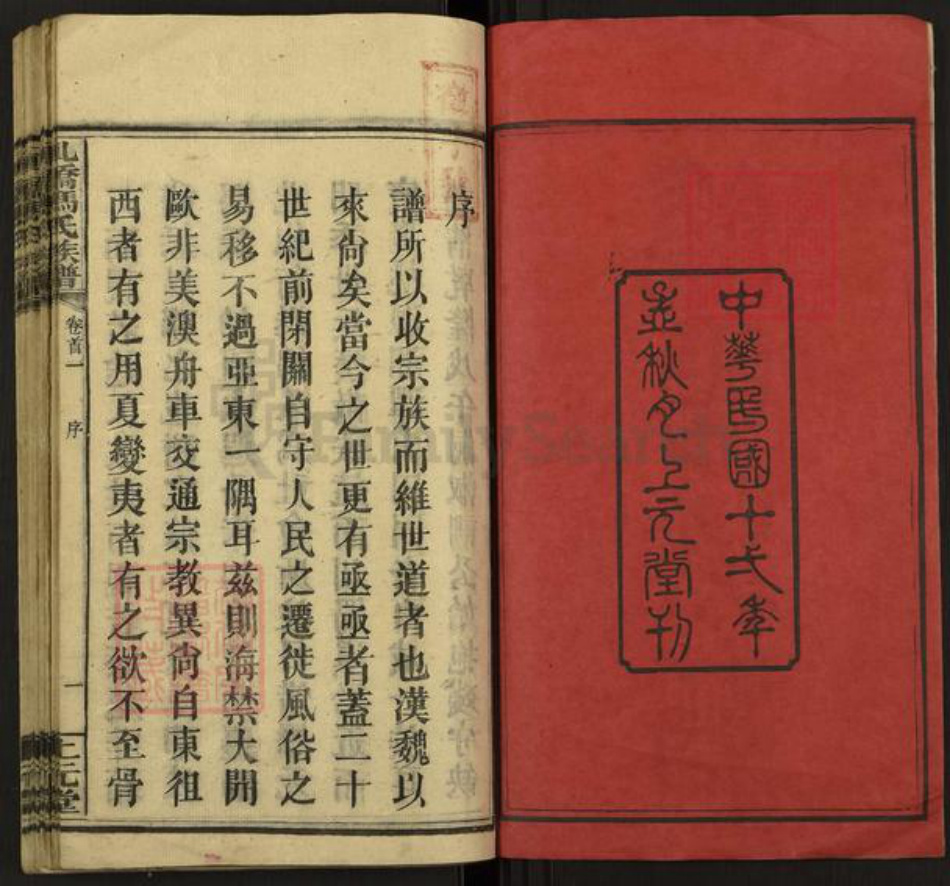 中華民國十七年
孟秋月上元堂刊
序
譜所以收宗族而維世道者也漢魏以
來尙矣當今之世更有亟亟者蓋二十
世紀前閉關自守人民之遷徙風俗之
易移不過亞東一隅耳茲則海禁大開
歐非美澳舟車交通宗教異尙自東徂
西者有之用夏變夷者有之欲不至骨
馮氏族譜
卷首一
序
一
上元堂